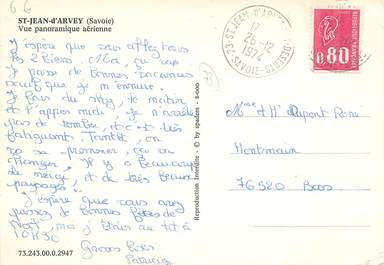 66
ST-JEAN-d'ARVEY (Savoie)
Vue panoramique aérienne
J'espère que vous allez tous
les 2 biens. Moi, ça va
Je passe de bonnes vacances
sauf que je m'ennuie.
Je fais du ski, le matin
et l'après midi, je n'arrête
pas de tomber, et c'est très
fatiguant. Tantôt, on
va se promener, ça va
changer. Il y a beaucoup
de neige et de très beaux
paysages.
J'espère que vous avez
passés de bonnes fêtes de
Noël, moi j'étais au lit à
10H30
Grosses bises
Patricia
73.243.00.0.2947
Reproduction interdite - © by spadem - 8-000
73-ST JEAN D'ARVEY
12 H
26-12
1974
SAVOIE
73
REPUBLIQUE FRANCAISE
0,80
POSTES
Mme et Mr Dupont René
Montmain
76520 Boos